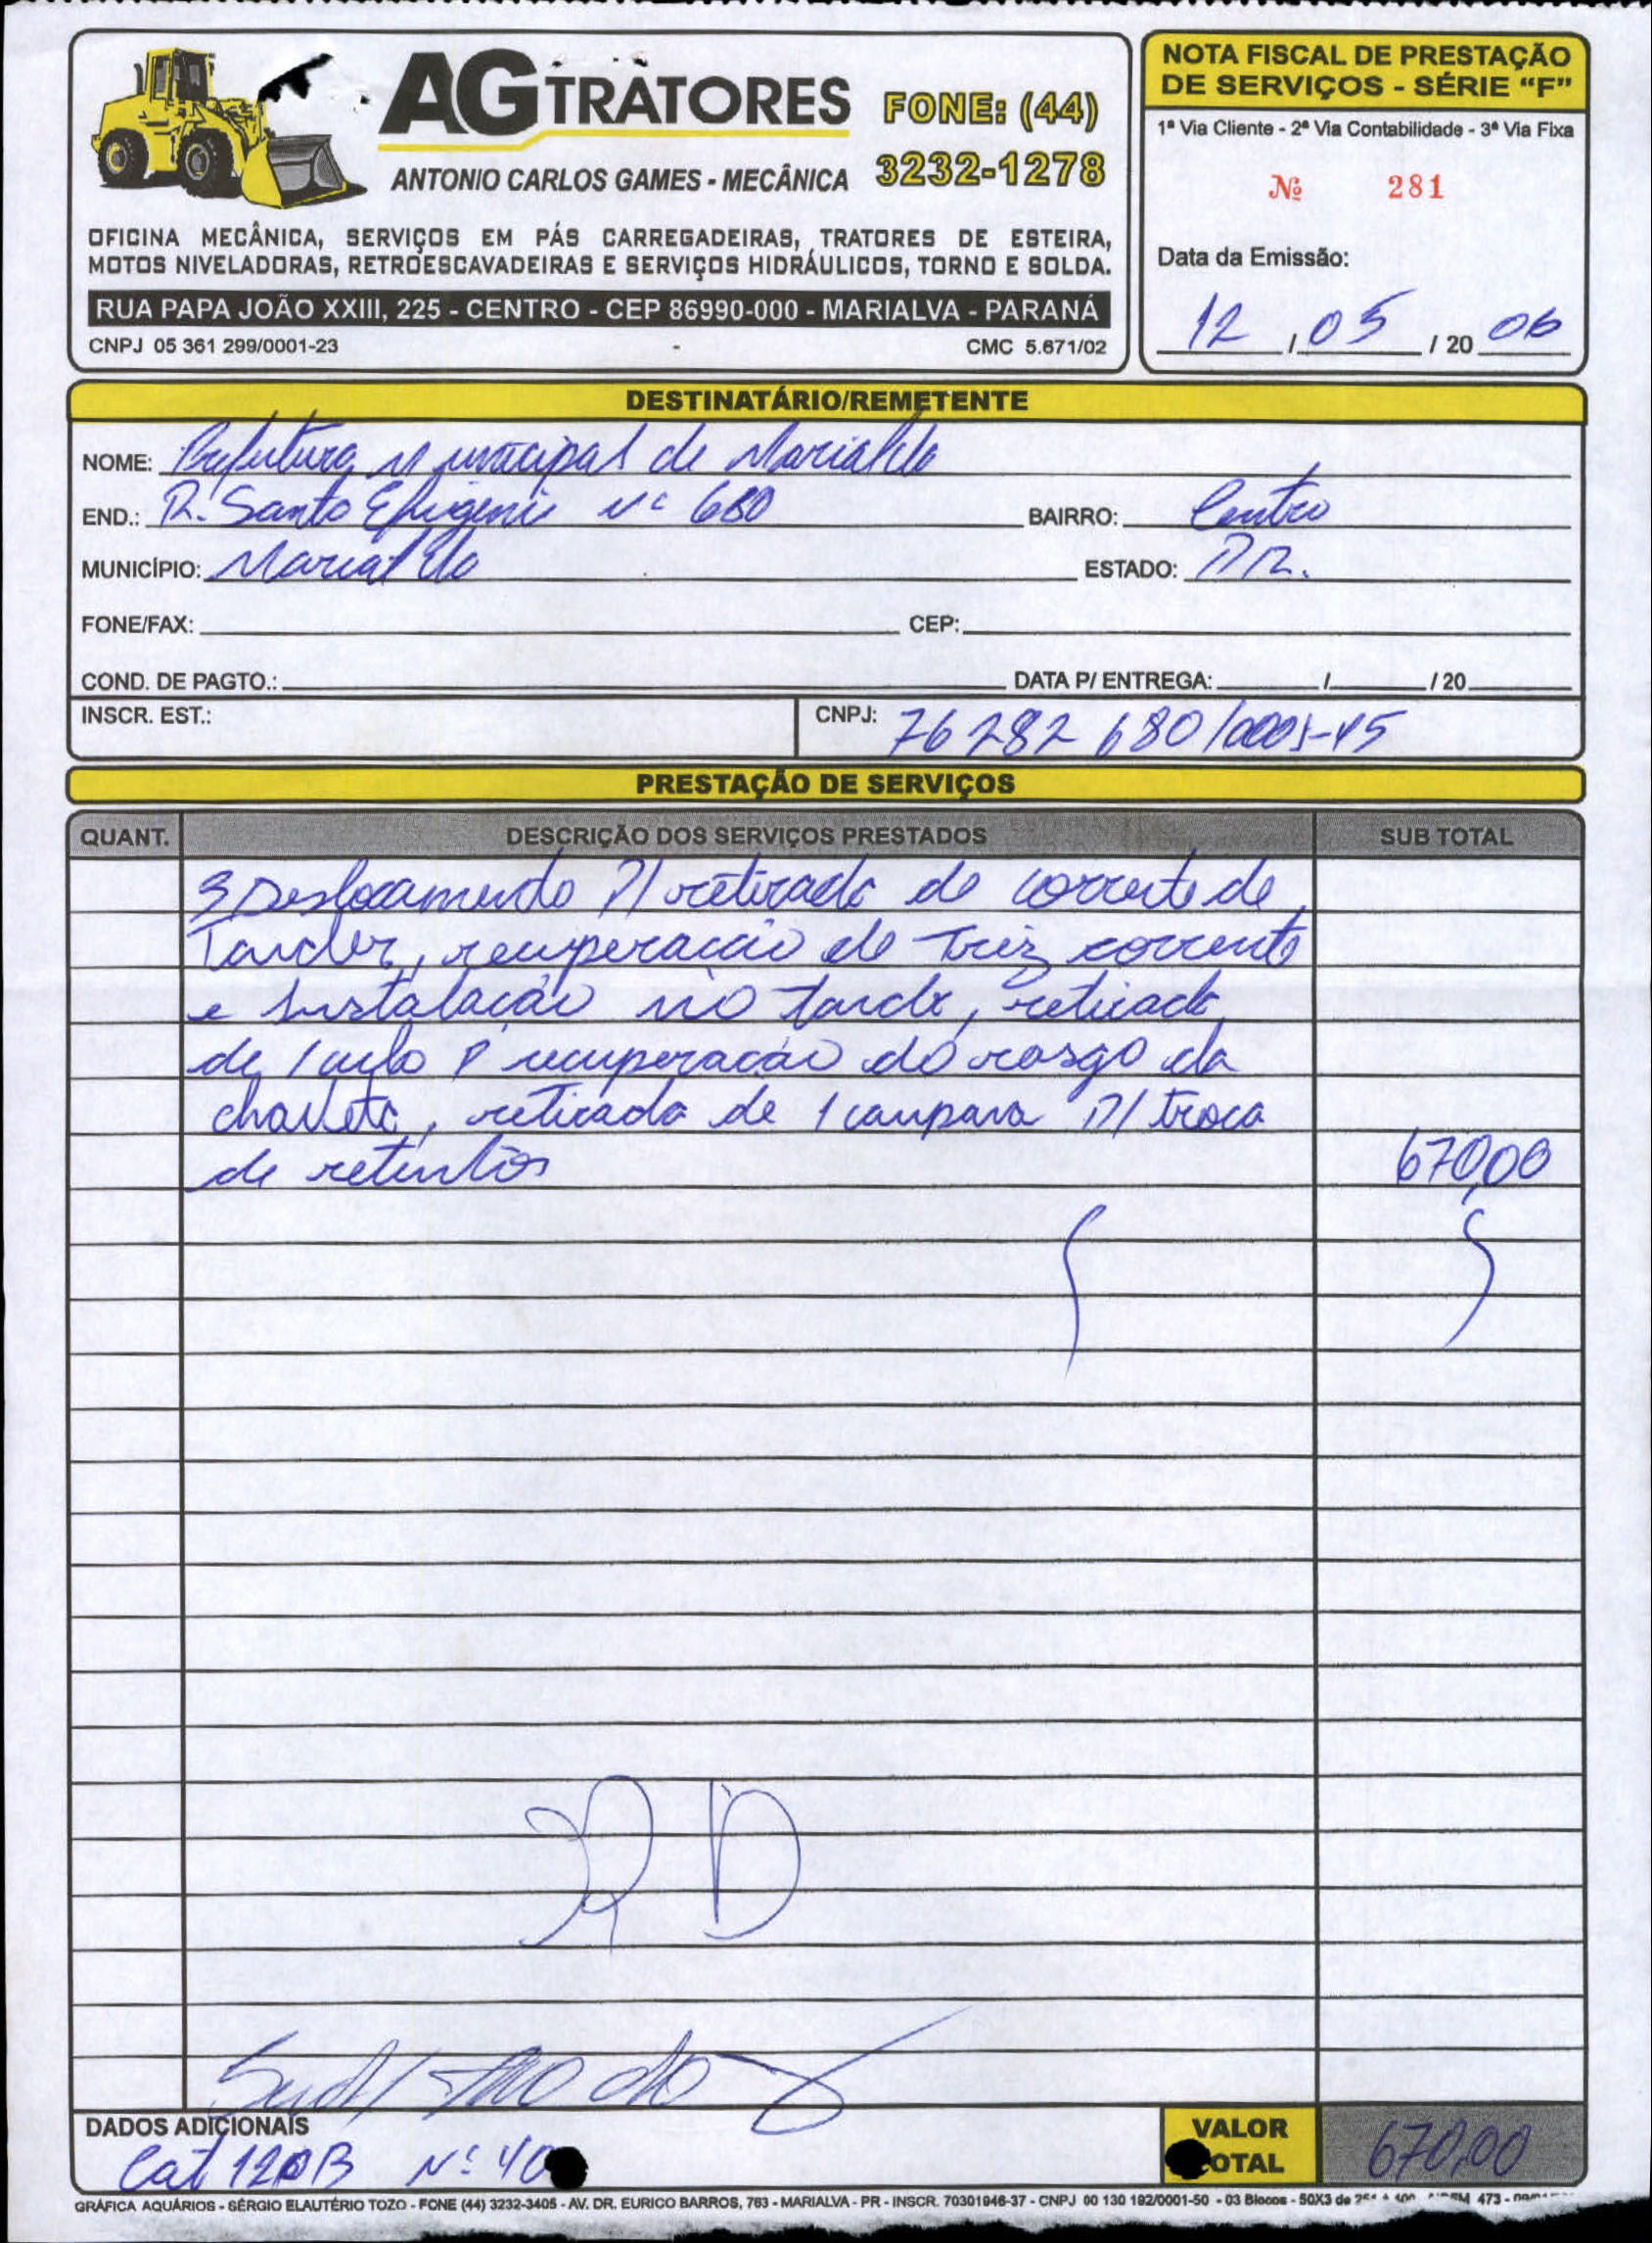 AG TRATORES
FONE: (44)
3232-1278
ANTONIO CARLOS GAMES - MECÂNICA
OFICINA MECÂNICA, SERVIÇOS EM PÁS CARREGADEIRAS, TRATORES DE ESTEIRA,
MOTOS NIVELADORAS, RETROESCAVADEIRAS E SERVIÇOS HIDRÁULICOS, TORNO E SOLDA.
RUA PAPA JOÃO XXIII, 225 - CENTRO - CEP 86990-000 - MARIALVA - PARANÁ
CNPJ 05 361 299/0001-23 - CMC 5.671/02
NOTA FISCAL DE PRESTAÇÃO
DE SERVIÇOS - SÉRIE “F”
1ª Via Cliente - 2ª Via Contabilidade - 3ª Via Fixa
Nº 281
Data da Emissão:
12 / 05 / 20 06
DESTINATÁRIO/REMETENTE
NOME: Prefeitura Municipal de Marialva
END.: R. Santa Efigenia Nº 680 BAIRRO: Centro
MUNICÍPIO: Marialva ESTADO: PR.
FONE/FAX: CEP:
COND. DE PAGTO.: DATA P/ ENTREGA: / / 20
INSCR. EST.: CNPJ: 76 282 680/0001-45
PRESTAÇÃO DE SERVIÇOS
QUANT. DESCRIÇÃO DOS SERVIÇOS PRESTADOS SUB TOTAL
3 Deslocamento P/ retirada de corrente de
Tander, recuperacão de Treiz corrente
e Instalacão no tande, retirada
de 1 P recuperacão do rasgo da
chaveta, retirada de 1 campana P/ troca
de retentor 670,00
DADOS ADICIONAIS
Cat 120B Nº 40
VALOR
TOTAL 670,00
GRÁFICA AQUÁRIOS - SÉRGIO ELAUTÉRIO TOZO - FONE (44) 3232-3405 - AV. DR. EURICO BARROS, 763 - MARIALVA - PR - INSCR. 70301946-37 - CNPJ 00 130 192/0001-50 - 03 Blocos - 50X3 de